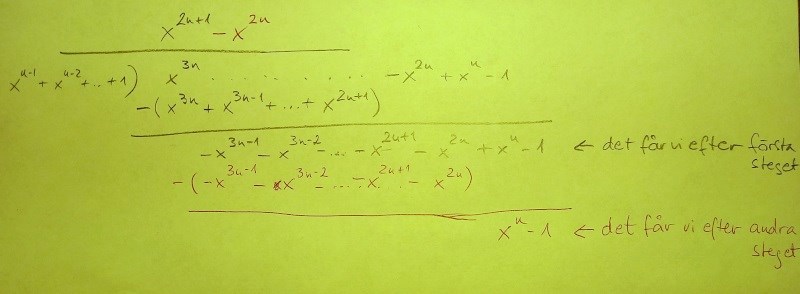 x^{2n+1} - x^{2n}
x^{n-1} + x^{n-2} + .. + 1) x^{3n} . . . . . . . . . - x^{2n} + x^n - 1
-(x^{3n} + x^{3n-1} + ... + x^{2n+1})
-x^{3n-1} - x^{3n-2} - ... - x^{2n+1} - x^{2n} + x^n - 1 ← det får vi efter första
steget
-(-x^{3n-1} - x^{3n-2} - .... - x^{2n+1} - x^{2n})
x^n - 1 ← det får vi efter andra
steget